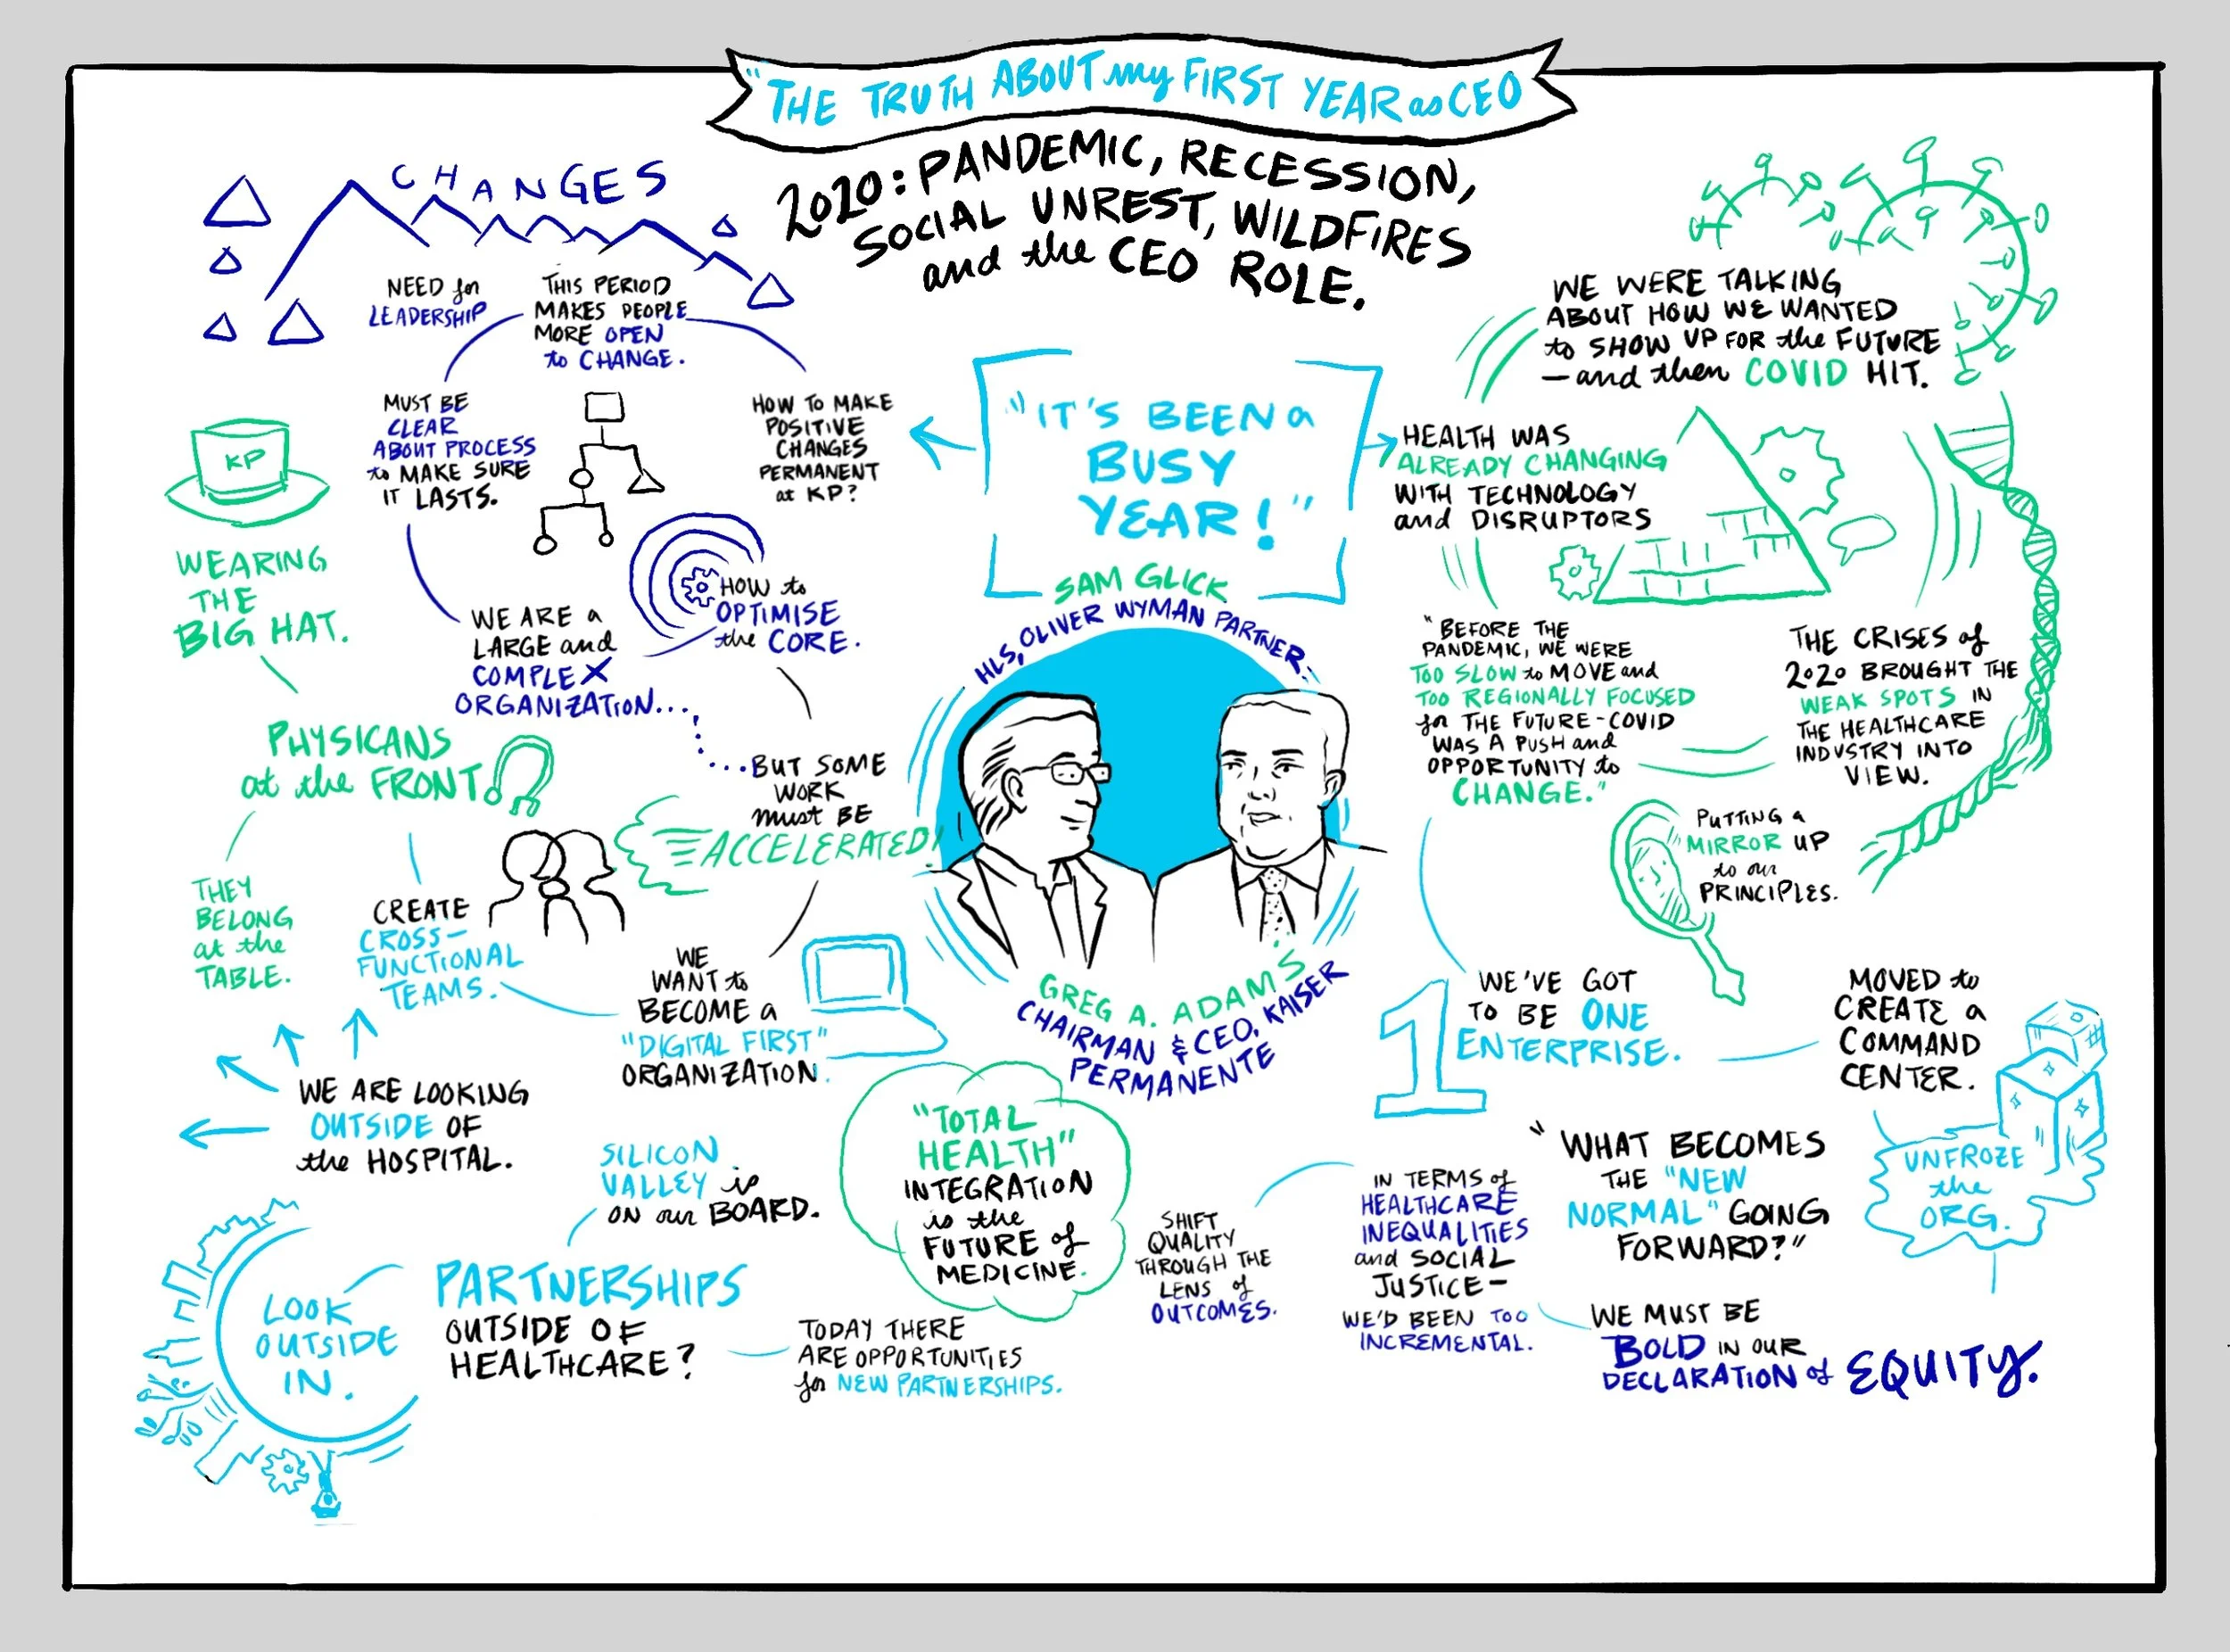 "THE TRUTH ABOUT my FIRST YEAR as CEO
2020: PANDEMIC, RECESSION,
SOCIAL UNREST, WILDFIRES
and the CEO ROLE.
CHANGES
NEED for
LEADERSHIP
THIS PERIOD
MAKES PEOPLE
MORE OPEN
to CHANGE.
MUST BE
CLEAR
ABOUT PROCESS
to MAKE SURE
IT LASTS.
HOW TO MAKE
POSITIVE
CHANGES
PERMANENT
at KP?
KP
WEARING
THE
BIG HAT.
WE ARE a
LARGE and
COMPLEX
ORGANIZATION...
HOW to
OPTIMISE
the CORE.
...BUT SOME
WORK
must BE
ACCELERATED!
PHYSICANS
at the FRONT
THEY
BELONG
at the
TABLE.
CREATE
CROSS-
FUNCTIONAL
TEAMS.
WE
WANT to
BECOME a
"DIGITAL FIRST"
ORGANIZATION.
WE ARE LOOKING
OUTSIDE OF
the HOSPITAL.
SILICON
VALLEY is
ON our BOARD.
LOOK
OUTSIDE
IN.
PARTNERSHIPS
OUTSIDE OF
HEALTHCARE?
TODAY THERE
ARE OPPORTUNITIES
for NEW PARTNERSHIPS.
"TOTAL
HEALTH"
INTEGRATION
is the
FUTURE of
MEDICINE.
"IT'S BEEN a
BUSY
YEAR!"
SAM GLICK
HLS, OLIVER WYMAN PARTNER:
GREG A. ADAMS
CHAIRMAN & CEO, KAISER
PERMANENTE
WE WERE TALKING
ABOUT HOW WE WANTED
to SHOW UP FOR the FUTURE
- and then COVID HIT.
HEALTH WAS
ALREADY CHANGING
WITH TECHNOLOGY
and DISRUPTORS
"BEFORE THE
PANDEMIC, WE WERE
TOO SLOW to MOVE and
TOO REGIONALLY FOCUSED
for THE FUTURE - COVID
WAS A PUSH and
OPPORTUNITY to
CHANGE."
THE CRISES of
2020 BROUGHT THE
WEAK SPOTS IN
THE HEALTHCARE
INDUSTRY INTO
VIEW.
PUTTING A
MIRROR UP
to our
PRINCIPLES.
1
WE'VE GOT
TO BE ONE
ENTERPRISE.
MOVED to
CREATE a
COMMAND
CENTER.
UNFROZE
the
ORG.
"WHAT BECOMES
THE "NEW
NORMAL" GOING
FORWARD?"
IN TERMS of
HEALTHCARE
INEQUALITIES
and SOCIAL
JUSTICE -
WE'D BEEN TOO
INCREMENTAL.
SHIFT
QUALITY
THROUGH THE
LENS of
OUTCOMES.
WE MUST BE
BOLD IN OUR
DECLARATION of EQUITY.